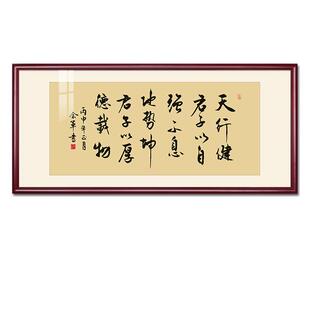 天行健
君子以自
强不息
地势坤
君子以厚
德载物
丙申年正月